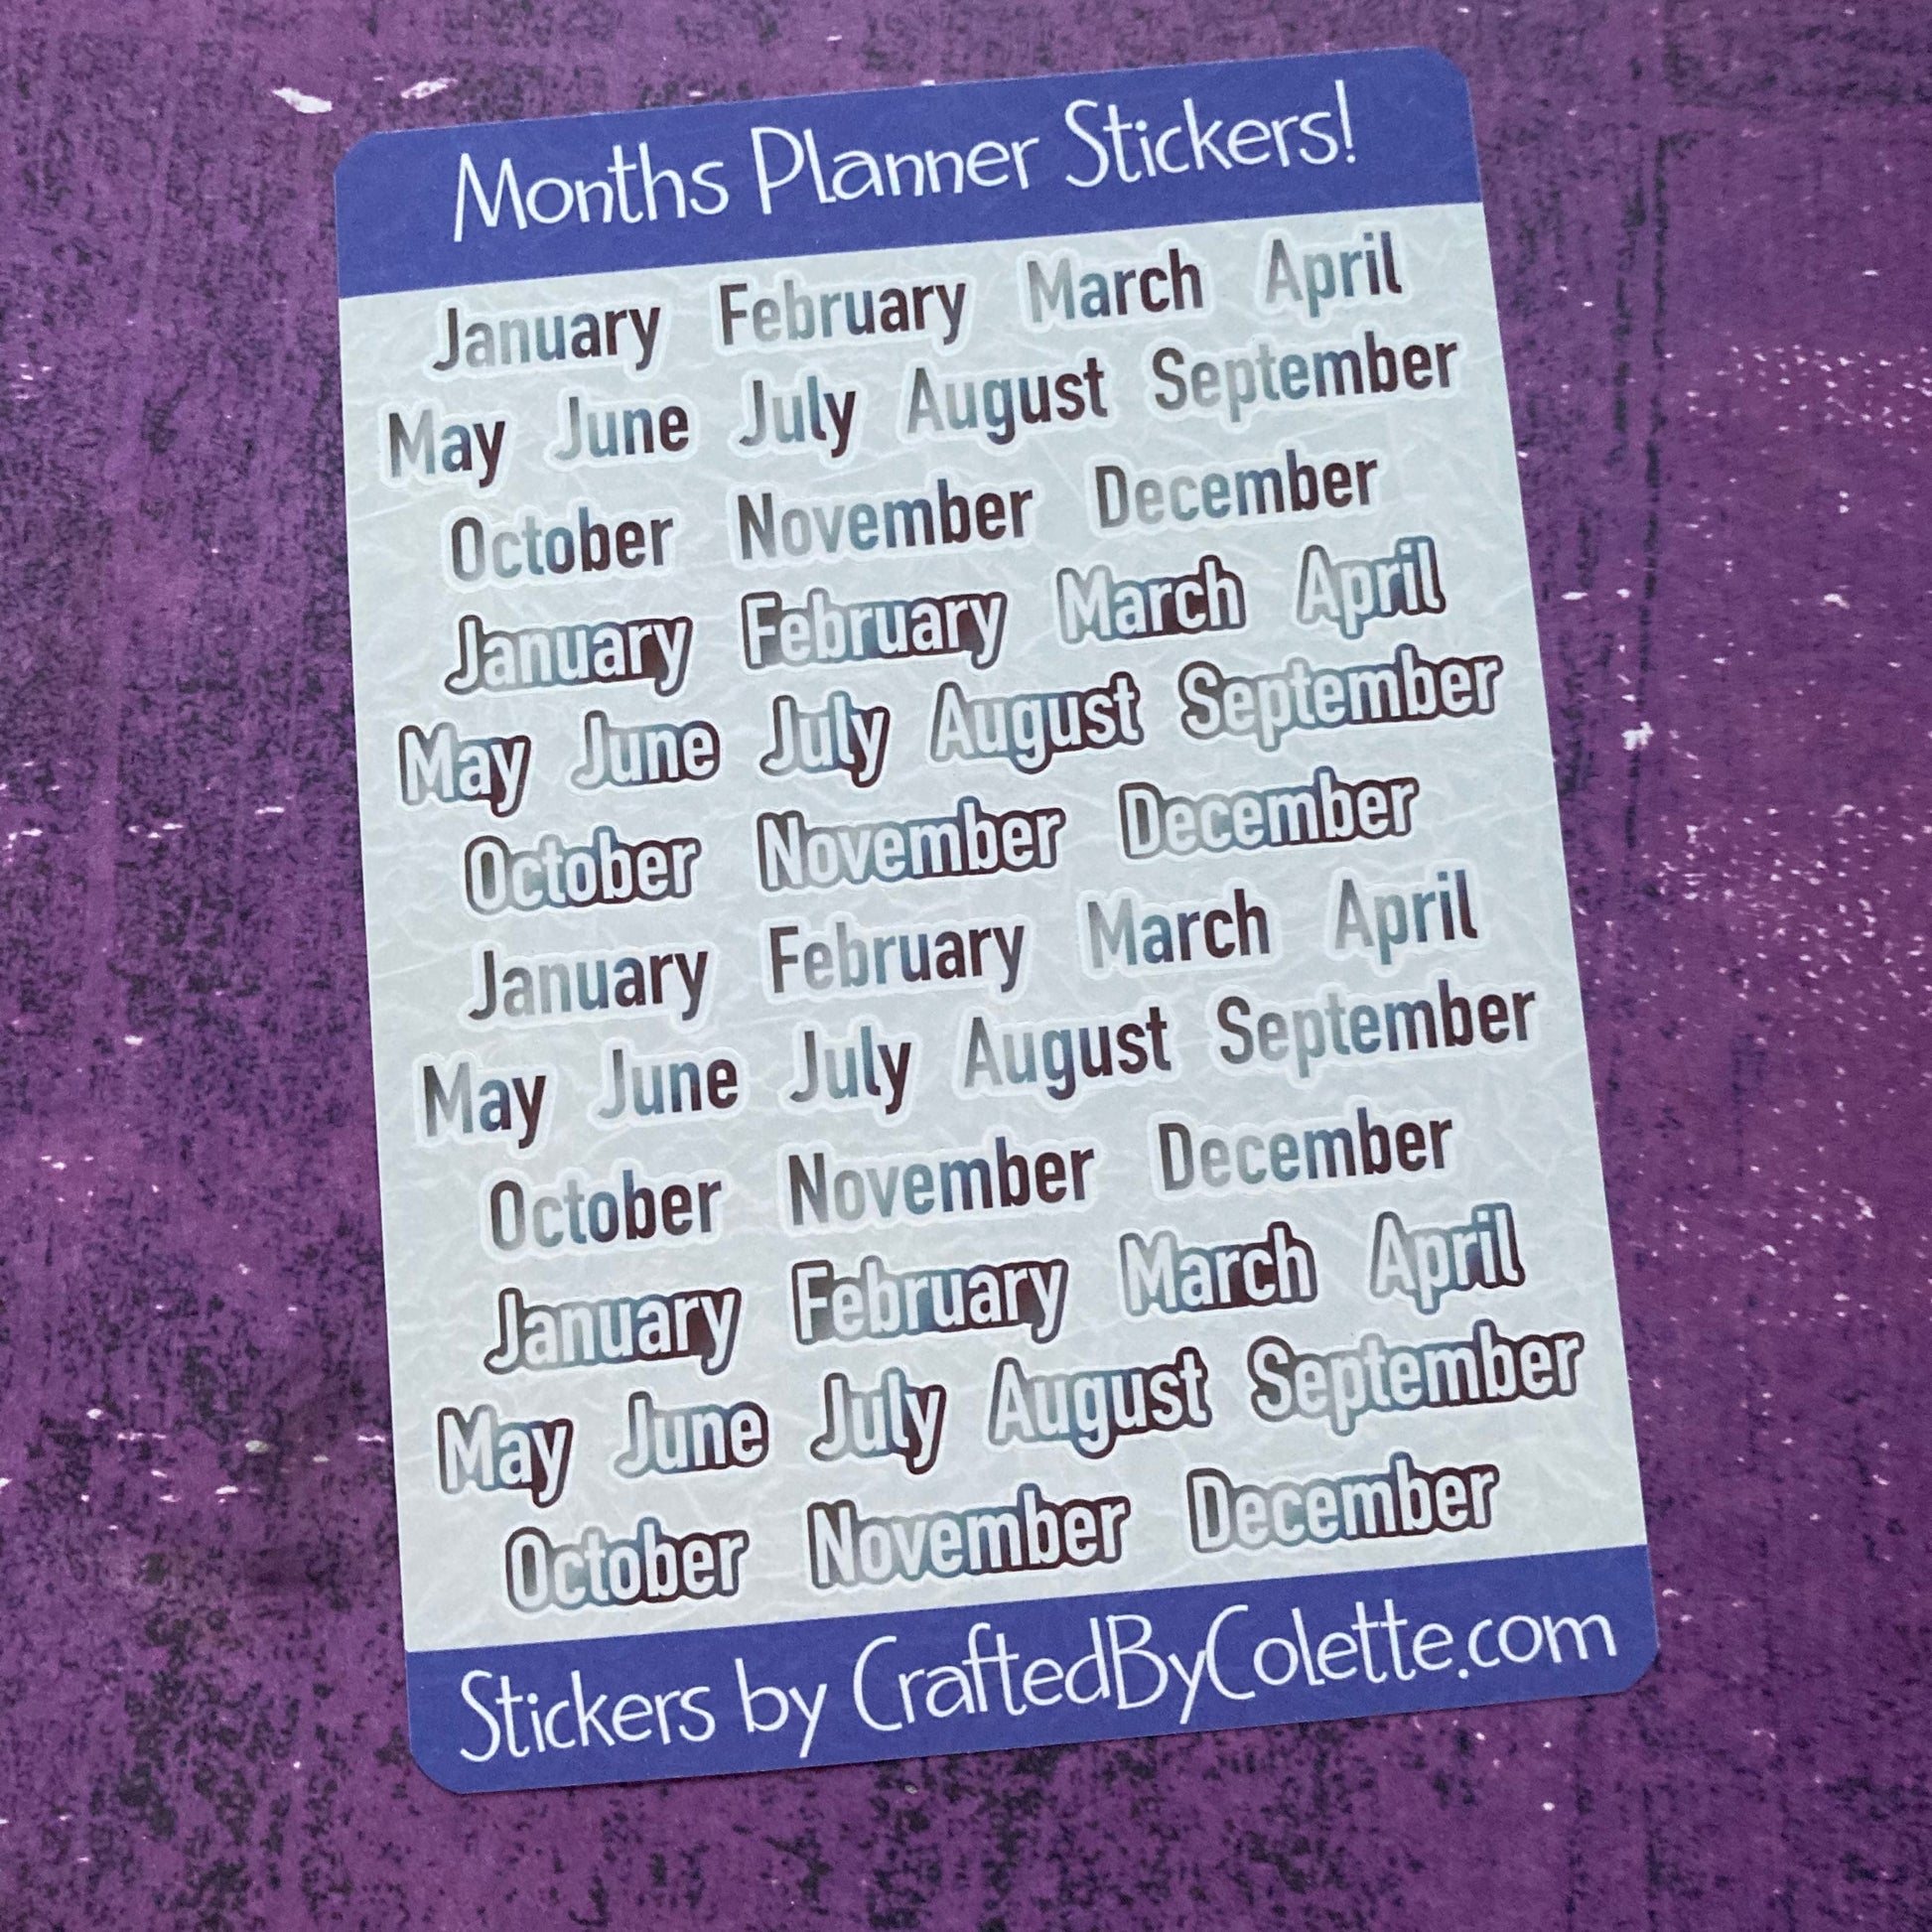 Months Planner Stickers!
January February March April
May June July August September
October November December
January February March April
May June July August September
October November December
January February March April
May June July August September
October November December
January February March April
May June July August September
October November December
Stickers by CraftedByColette.com